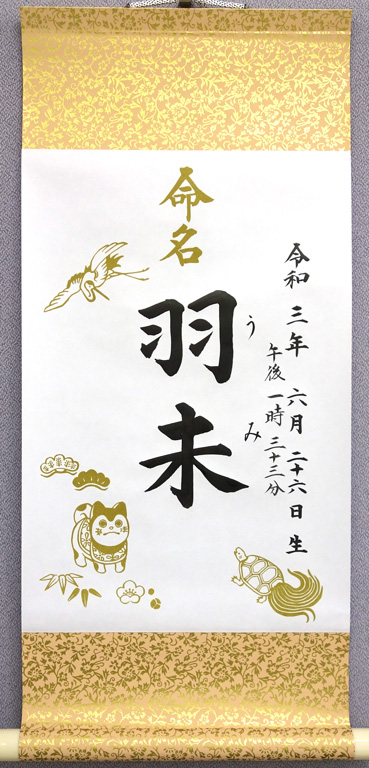 命名
令和三年六月二十六日生
午後一時三十三分
羽未
うみ